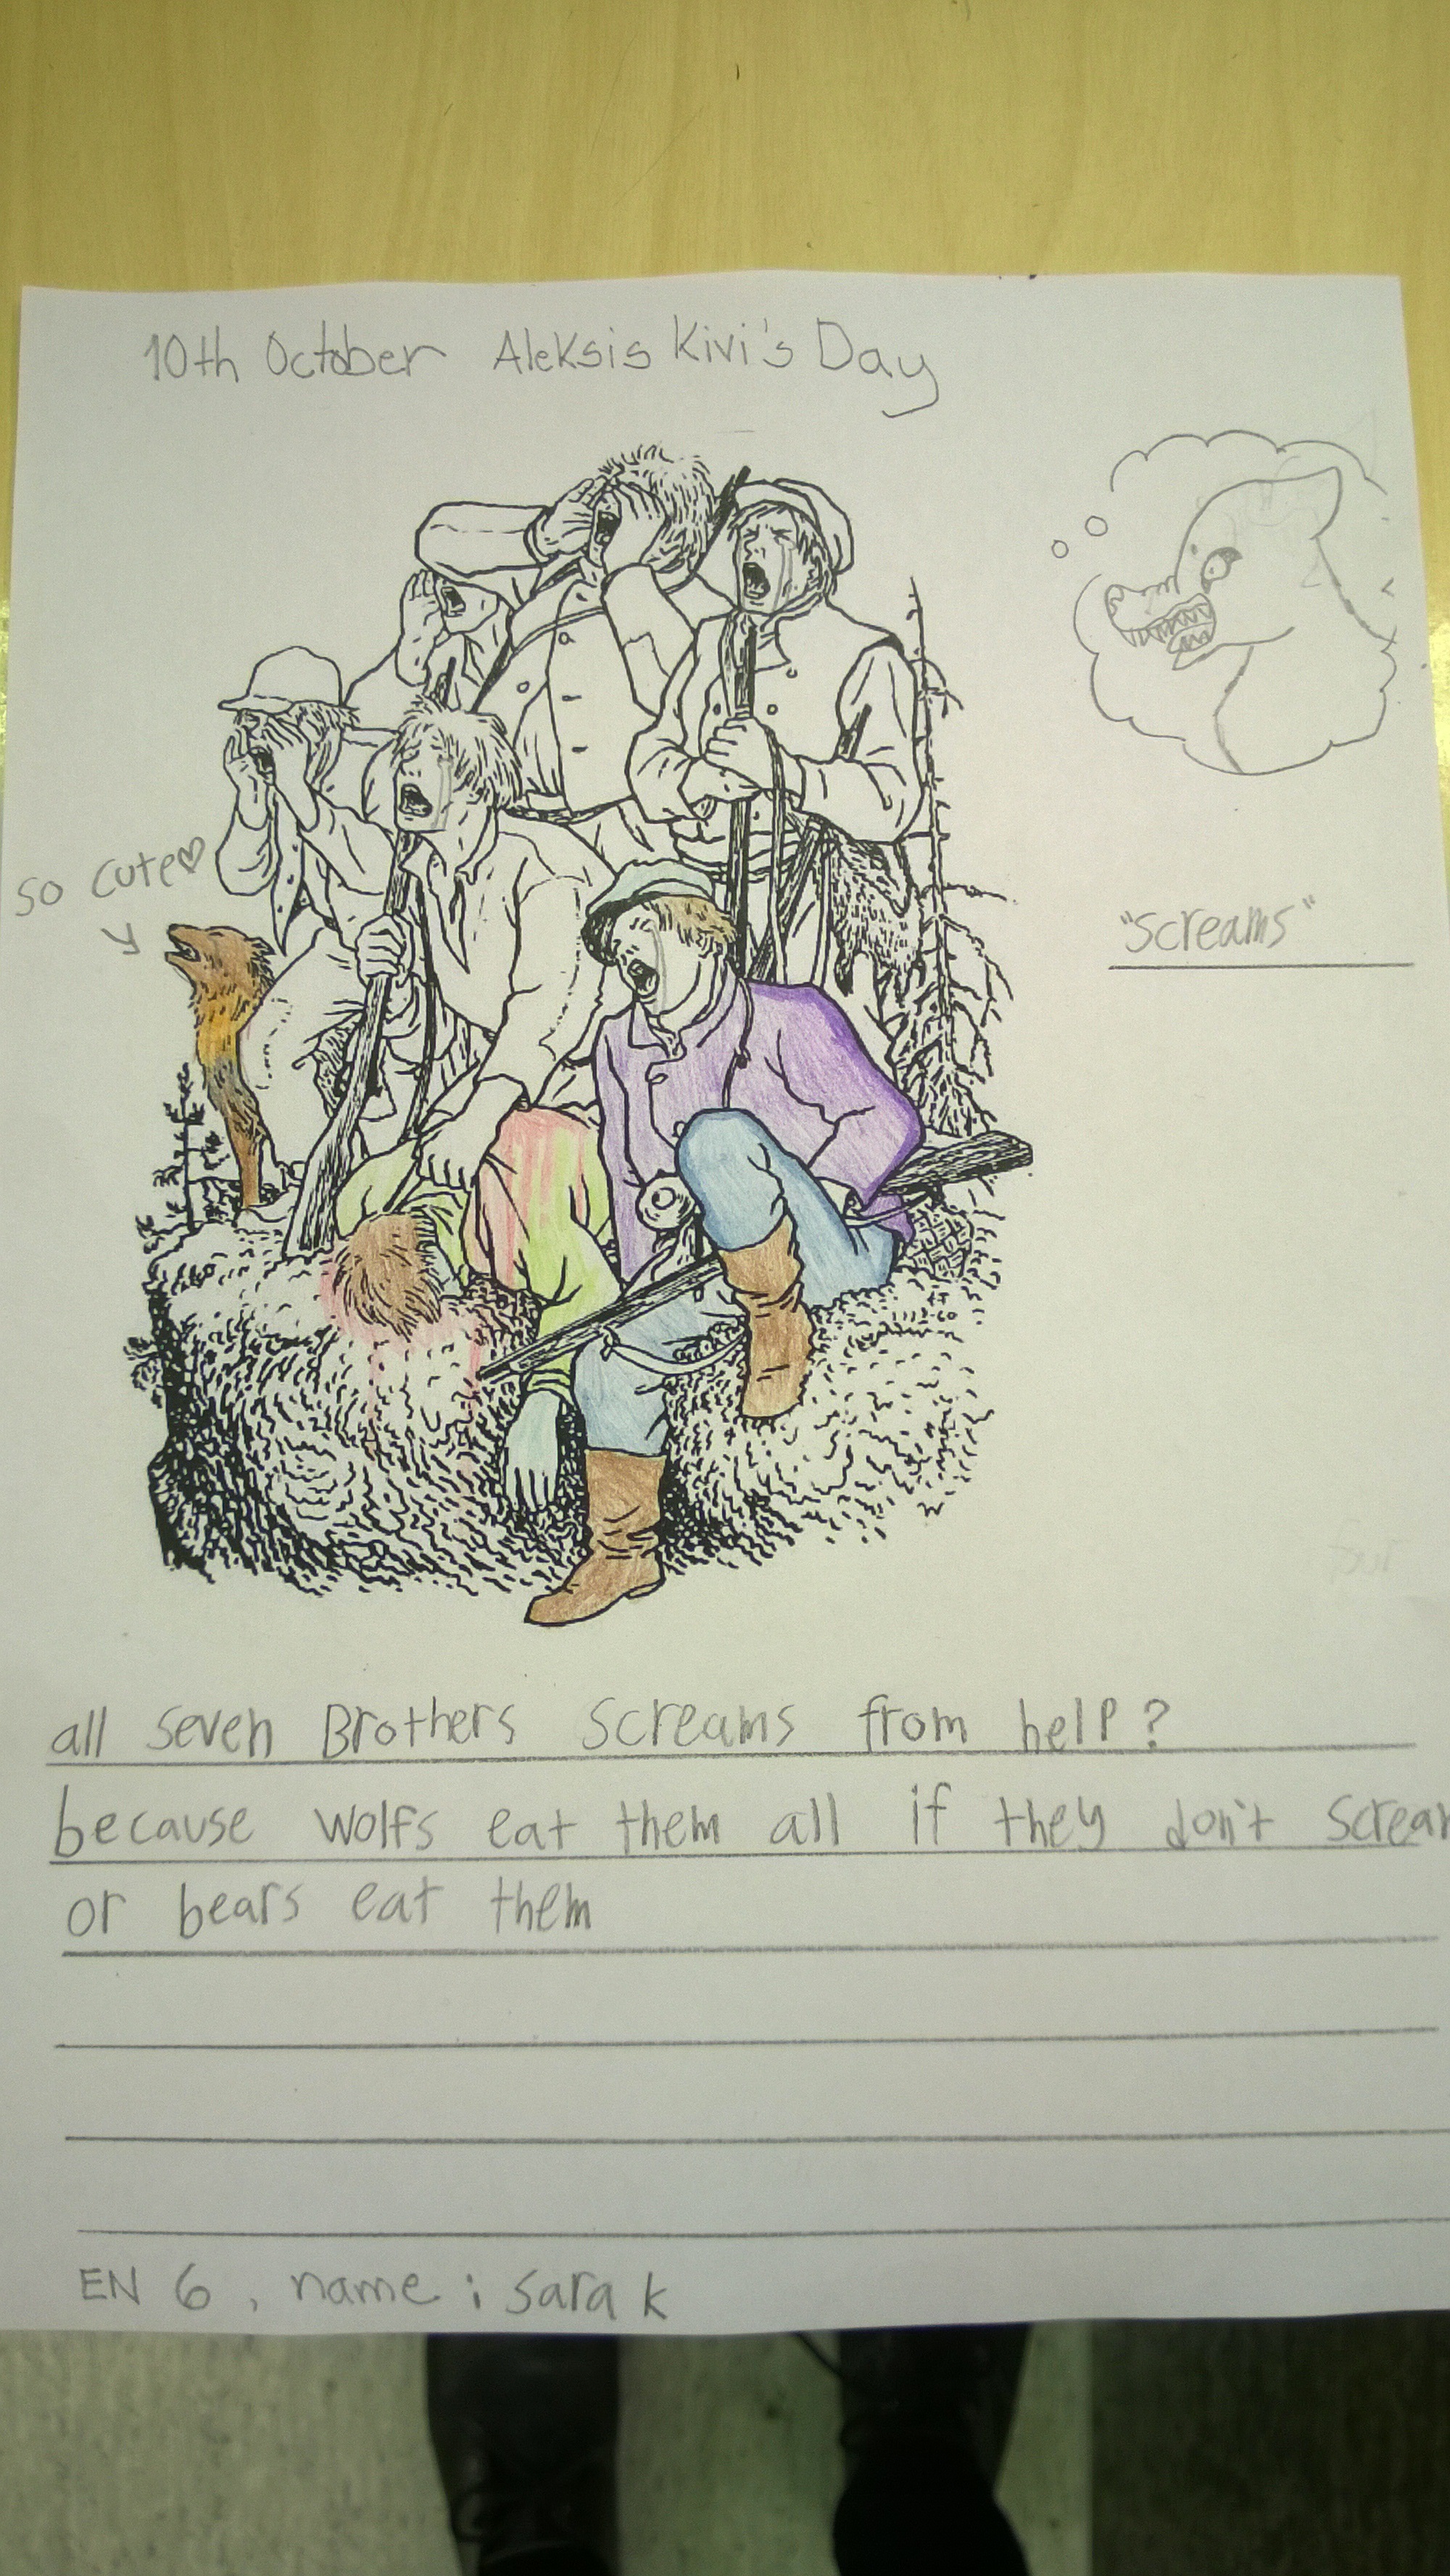 10th October Aleksis Kivi's Day
so cute♡
"screams"
all seven Brothers screams from help?
because wolfs eat them all if they don't scream
or bears eat them
EN 6, name: sara k